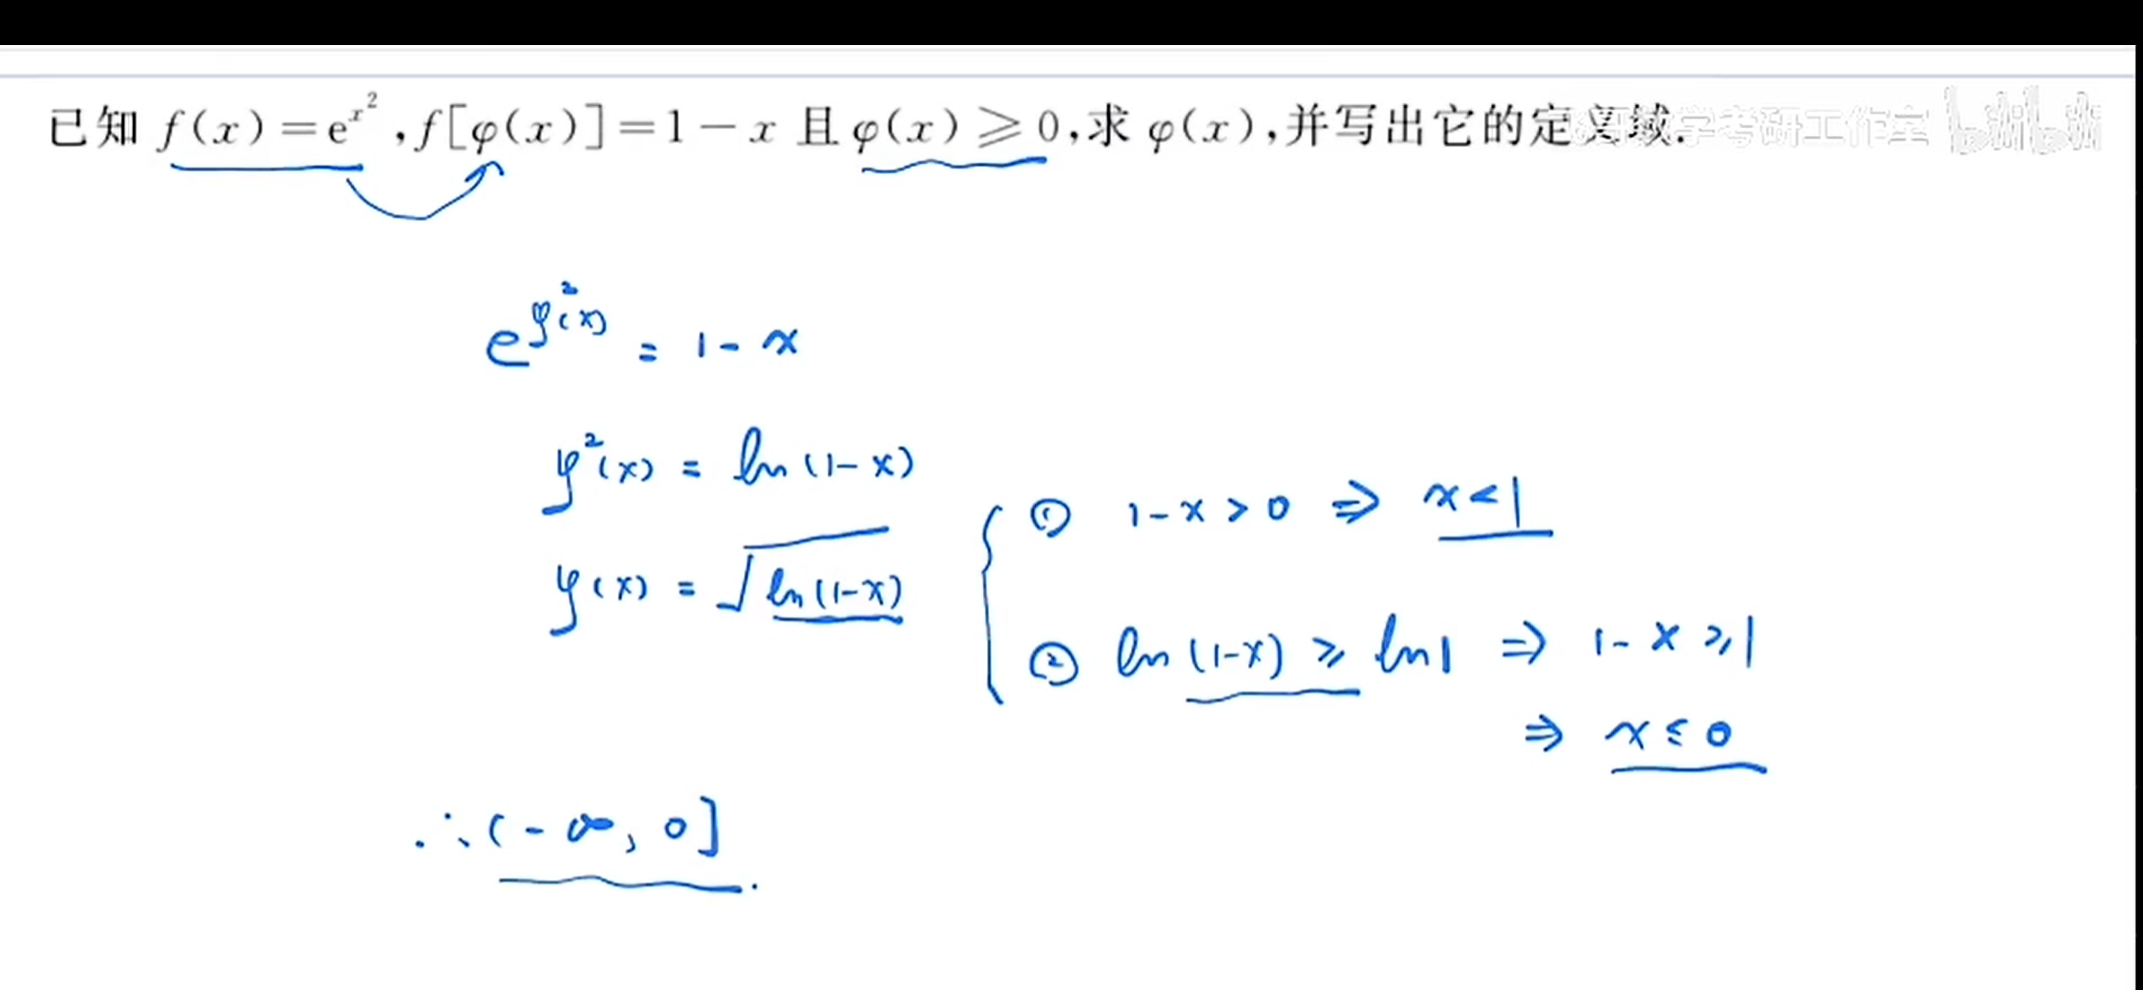 已知 f(x)=e^{x^2},f[φ(x)]=1-x 且 φ(x)⩾0,求 φ(x),并写出它的定义域.
学考研工作室 bilibili
e^{φ^2(x)} = 1-x
φ^2(x) = ln(1-x)
φ(x) = √ln(1-x)
① 1-x>0 ⇒ x<1
② ln(1-x) ⩾ ln1 ⇒ 1-x⩾1
⇒ x≤0
∴(-∞, 0].